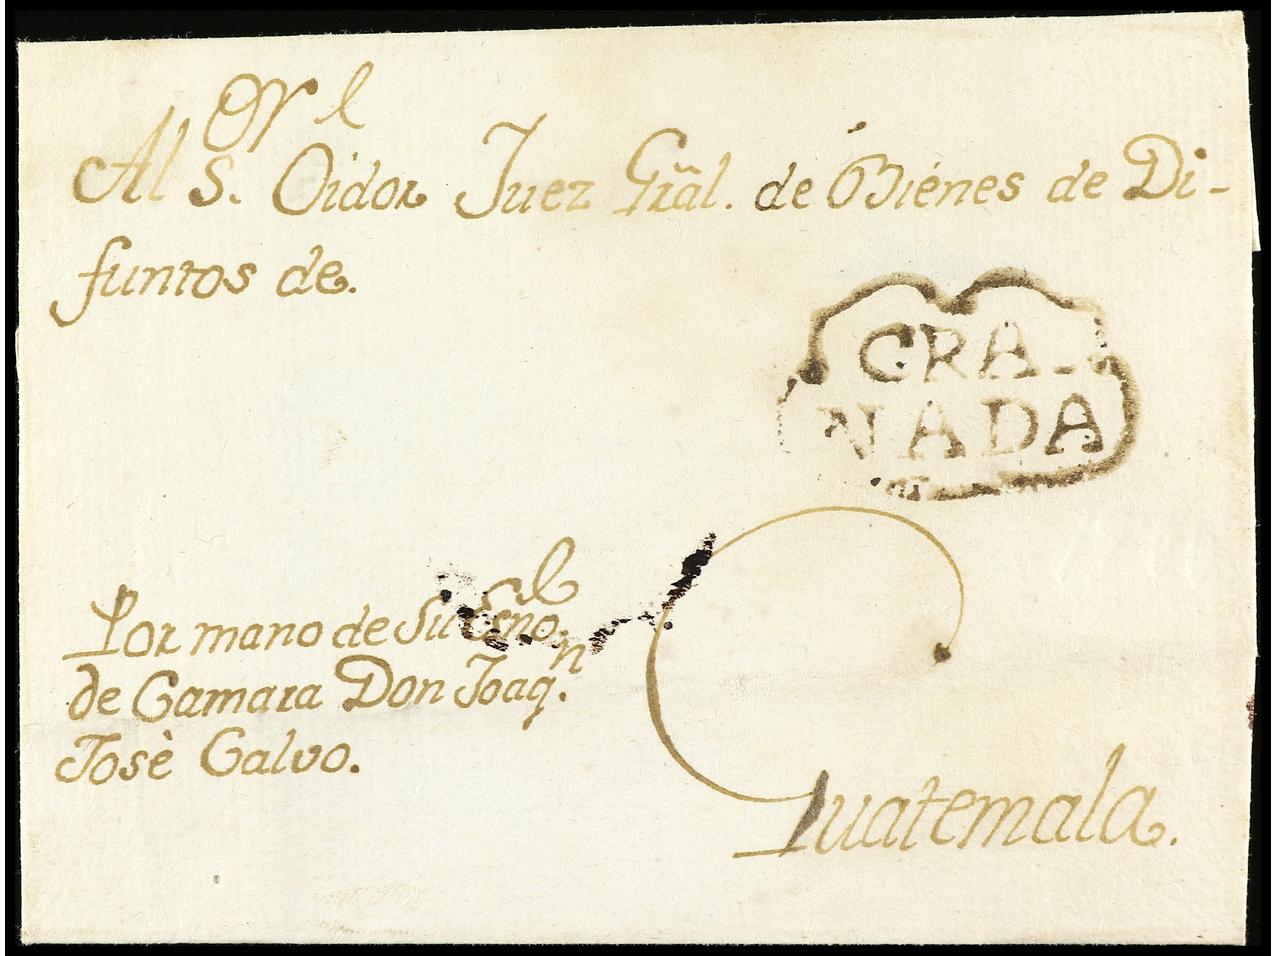 Al S.or Oidor Juez Grãl. de Bienes de Di-
funtos de.
GRA-
NADA
Por mano de Su Esno.
de Camara Don Joaq.n
Josè Calvo.
Guatemala.